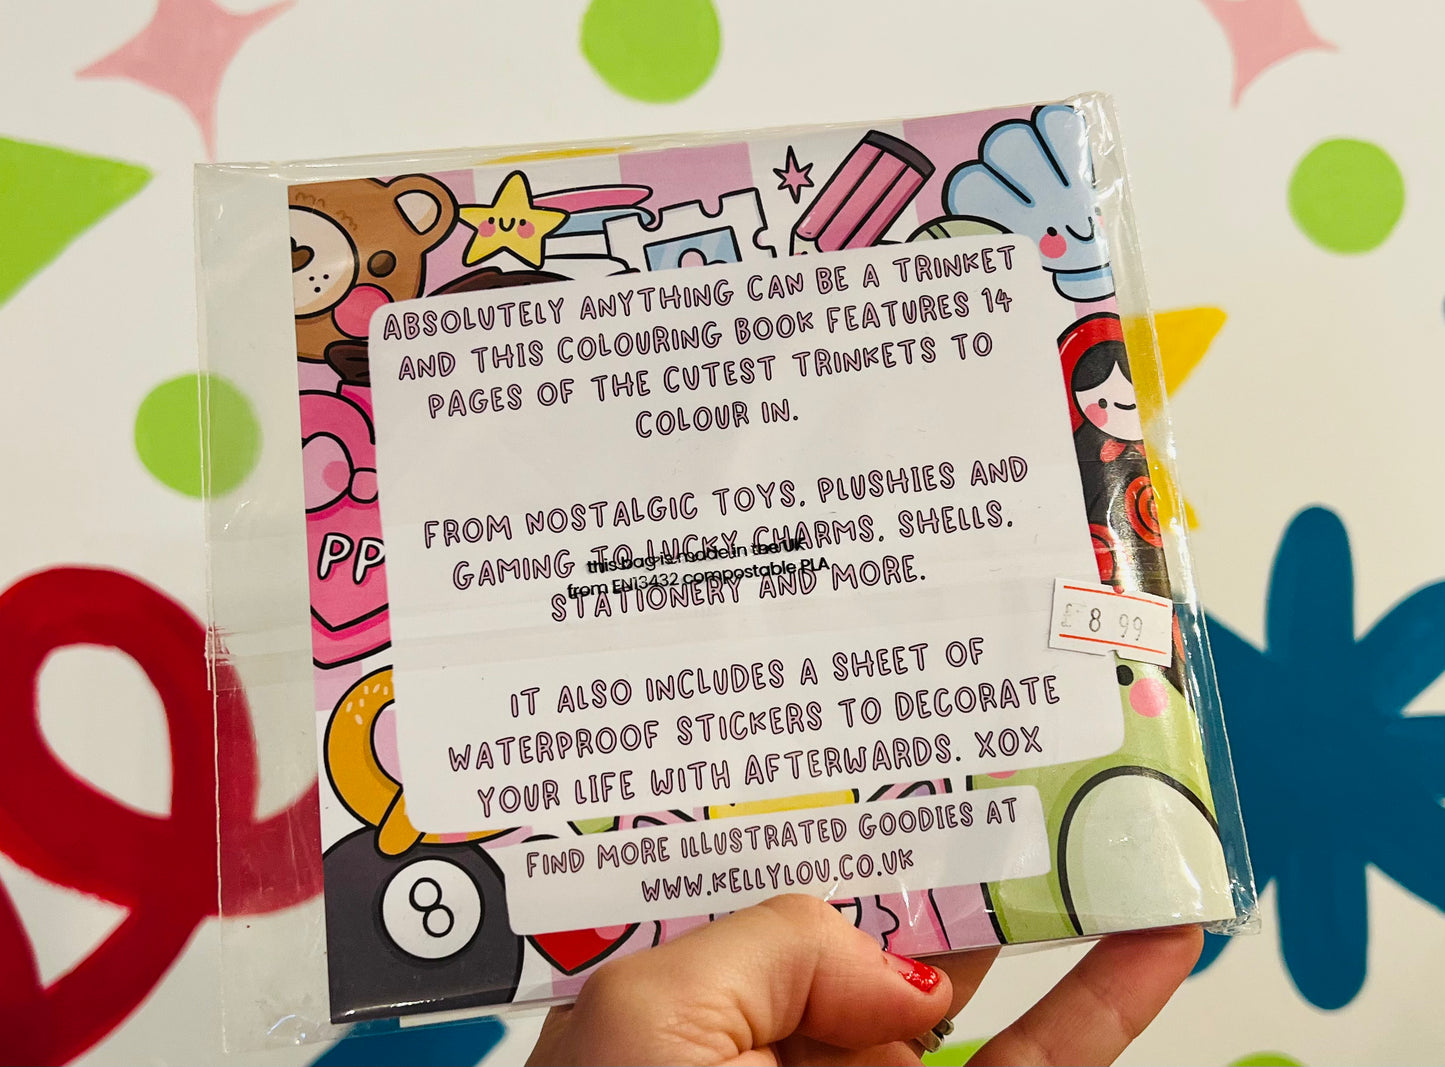 ABSOLUTELY ANYTHING CAN BE A TRINKET
AND THIS COLOURING BOOK FEATURES 14
PAGES OF THE CUTEST TRINKETS TO
COLOUR IN.
FROM NOSTALGIC TOYS, PLUSHIES AND
GAMING TO LUCKY CHARMS, SHELLS,
STATIONERY AND MORE.
this bag is made in the UK
from EN13432 compostable PLA
IT ALSO INCLUDES A SHEET OF
WATERPROOF STICKERS TO DECORATE
YOUR LIFE WITH AFTERWARDS. XOX
FIND MORE ILLUSTRATED GOODIES AT
WWW.KELLYLOU.CO.UK
PP
£8 99
8